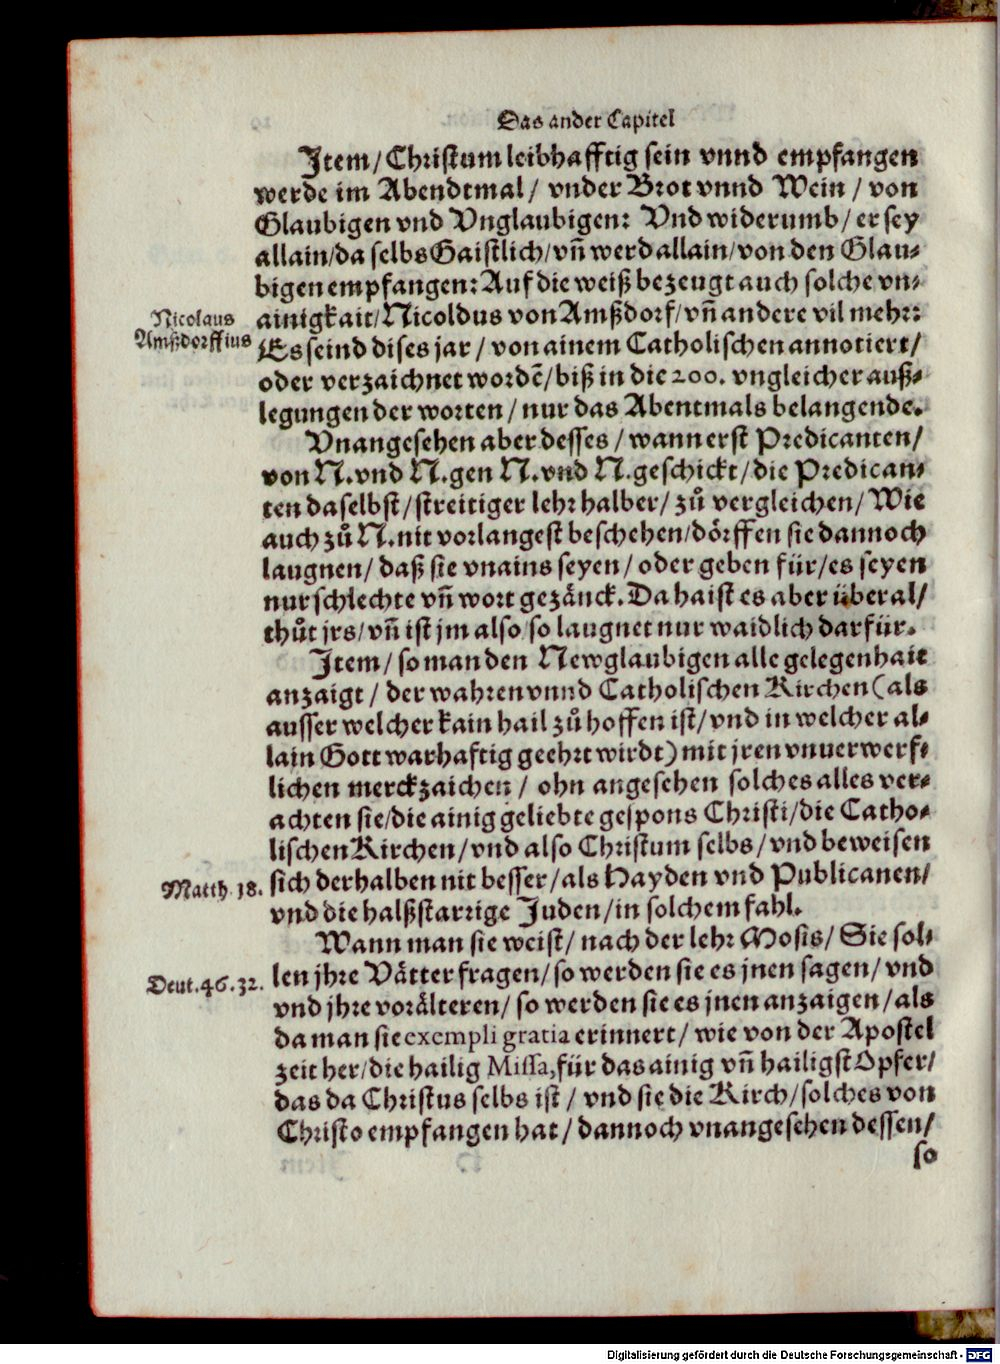 Das ander Capitel
Item/Christum leibhafftig sein vnnd empfangen
werde im Abendtmal/ vnder Brot vnnd Wein/ von
Glaubigen vnd Vnglaubigen: Vnd widerumb/ er sey
allain/da selbs Gaistlich/vñ werd allain/von den Glau-
bigen empfangen: Auf die weiß bezeugt auch solche vn-
Nicolaus
Amßdorffius
ainigkait/Nicoldus von Amßdorf/vñ andere vil mehr:
Es seind dises jar/ von ainem Catholischen annotiert/
oder verzaichnet wordẽ/biß in die 200. vngleicher auß-
legungen der worten/ nur das Abentmals belangende.
Vnangesehen aber desses/ wann erst Predicanten/
von N. vnd N. gen N. vnd N. geschickt/ die Predican-
ten daselbst/streitiger lehr halber/ zů vergleichen/ Wie
auch zů N. nit vorlangest beschehen/dörffen sie dannoch
laugnen/ daß sie vnains seyen/ oder geben für/es seyen
nur schlechte vñ wort gezänck. Da haist es aber überal/
thůt jrs/vñ ist jm also/so laugnet nur waidlich darfür.
Item/ so man den Newglaubigen alle gelegenhait
anzaigt/ der wahren vnnd Catholischen Kirchen (als
ausser welcher kain hail zů hoffen ist/vnd in welcher al-
lain Gott warhaftig geehrt wirdt) mit jren vnuerwerf-
lichen merckzaichen/ ohn angesehen solches alles ver-
achten sie/die ainig geliebte gespons Christi/die Catho-
lischen Kirchen/vnd also Christum selbs/ vnd beweisen
Matth. 18.
sich derhalben nit besser/als Hayden vnd Publicanen/
vnd die halßstarrige Juden/in solchem fahl.
Wann man sie weist/ nach der lehr Mosis/ Sie sol-
Deut. 46. 32.
len jhre Vätter fragen/ so werden sie es jnen sagen/ vnd
vnd jhre vorälteren/ so werden sie es jnen anzaigen/ als
da man sie exempli gratia erinnert/ wie von der Apostel
zeit her/die hailig Missa, für das ainig vñ hailigst Opfer/
das da Christus selbs ist/ vnd sie die Kirch/solches von
Christo empfangen hat/ dannoch vnangesehen dessen/
so
Digitalisierung gefördert durch die Deutsche Forschungsgemeinschaft - DFG